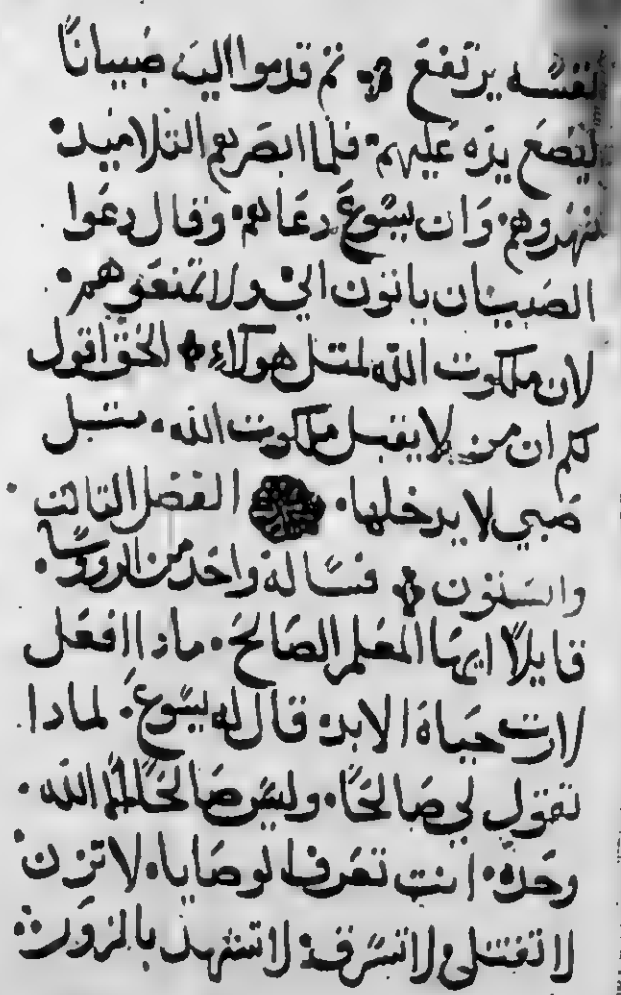 نفسه يرتفع ❖ ثم قدموا اليه صبيانًا
ليضع يده عليهم. فلما ابصرهم التلاميد.
نهروهم. وان يسوع دعاهم. وقال دعوا
الصبيان ياتون اليّ ولا تمنعوهم.
لان ملكوت الله لمتل هولاءِ ❖ الحق اقول
لكم ان من لا يقبل ملكوت الله. متبل
صبي لا يدخلها. الفصل التالت
والستون ❖ فساله واحد من الروسا.
قايلًا ايها المعلم الصالح. مادا افعل
لارت حياة الابد. قال له يسوع. لمادا
تقول لي صالحًا. وليس صالحًا الا الله.
وحده. انت تعرف الوصايا. لا تزن
لا تقتل. لا تسرق. لا تشهد بالزور.